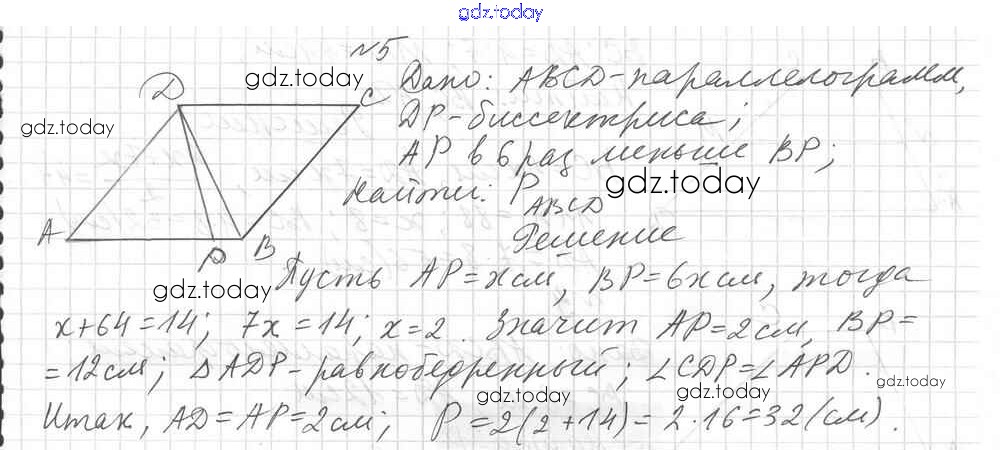 gdz.today
№5
gdz.today
D
C
Дано: ABCD - параллелограмм,
gdz.today
DP - биссектриса;
AP в 6 раз меньше BP;
gdz.today
Найти: P ABCD
A
P
B
Решение
gdz.today
Пусть AP = x см, BP = 6x см, тогда
x + 64 = 14; 7x = 14; x = 2. Значит AP = 2 см, BP =
= 12 см; △ADP - равнобедренный; ∠CDP = ∠APD.
gdz.today
gdz.today
Итак, AD = AP = 2 см; P = 2(2 + 14) = 2 · 16 = 32 (см).